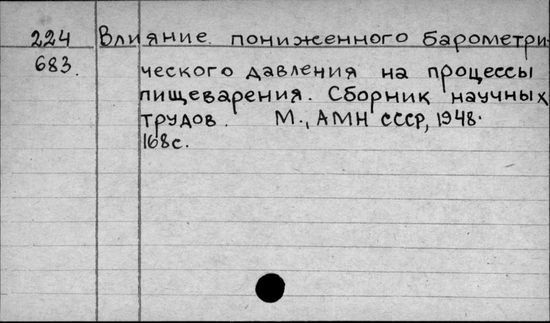 224 Влияние пониженного барометри-
683. ческого давления на процессы
пищеварения. Сборник научных
трудов. М., АМН СССР, 1948.
168с.